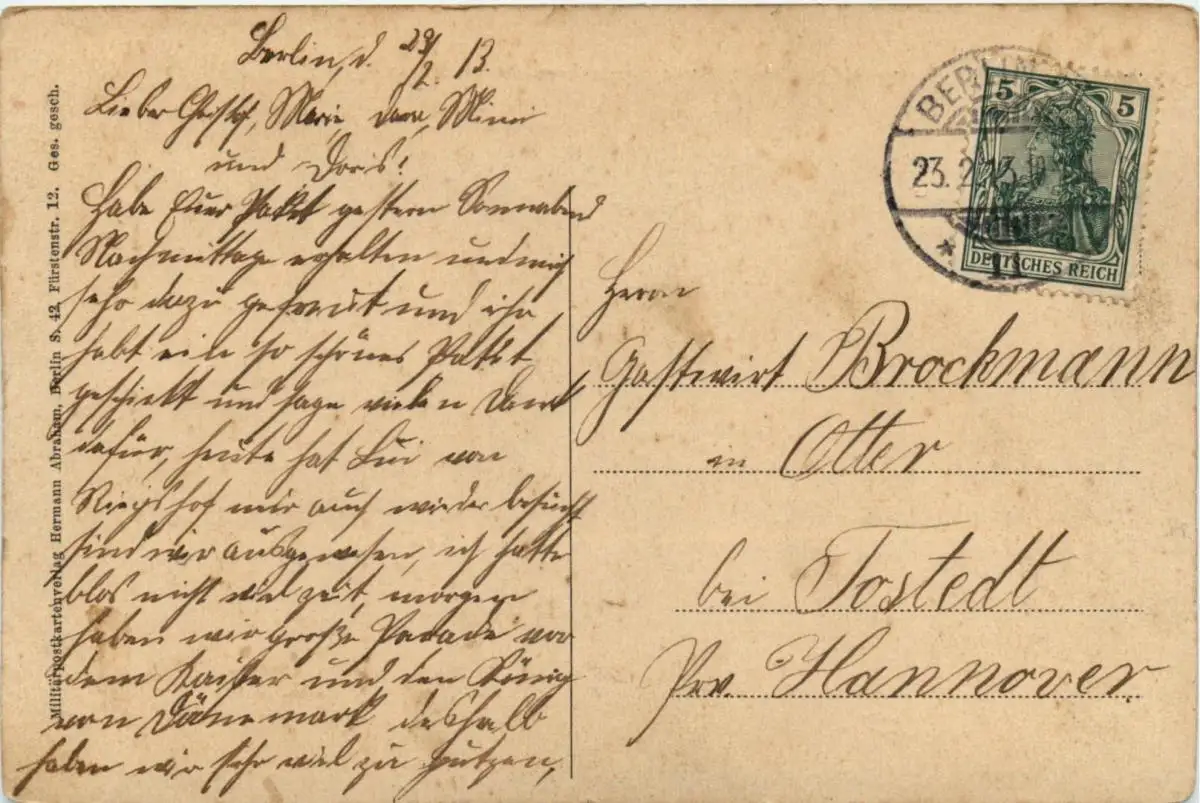 Berlin, d. 23/2. 13.
Lieber Christof, Marie Dora, Minna
und Doris!
Habe Euer Paket gestern Sonnabend
Nachmittage erhalten und mich
sehr dazu gefreut und ihr
habt ein so schönes Paket
geschickt und sage vielen Dank
dafür, heute hat Lui von
mir auch wieder besucht
sind wir ausgewesen, ich hatte
blos nicht viel Zeit, morgen
haben wir große Parade vor
dem Kaiser und den König
von Dänemark deshalb
haben wir sehr viel zu putzen,
Militärpostkartenverlag Hermann Abraham, Berlin S. 42, Fürstenstr. 12. Ges. gesch.
BERLIN
23. 2. 13.
* 11
5 5
DEUTSCHES REICH
Herrn
Gastwirt Brockmann
in Otter
bei Tostedt
Prv. Hannover